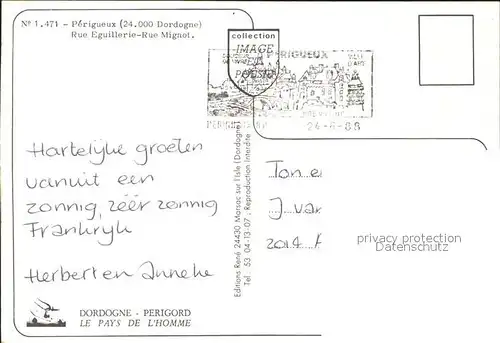 Nº 1.471 - Périgueux (24.000 Dordogne)
Rue Eguillerie-Rue Mignot.
collection
IMAGE
ET
POESIE
PERIGUEUX
24-6-88
Hartelijke groeten
vanuit een
zonnig, zéér zonnig
Frankrijk
Herbert en Anneke
Editions René 24430 Marsac sur l'Isle (Dordogne)
Tel. 53 04-13-07 : Reproduction Interdite
Ton e
J. var
2014
privacy protection
Datenschutz
DORDOGNE - PERIGORD
LE PAYS DE L'HOMME